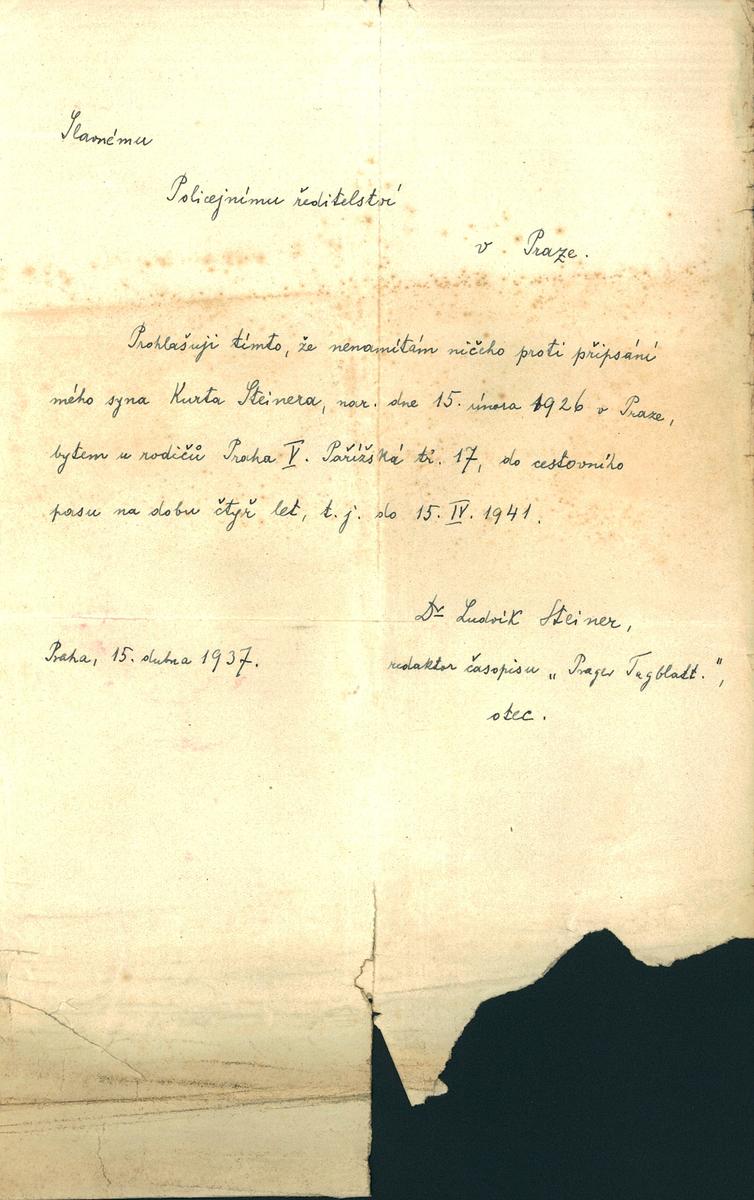 Slavnému
Policejnímu ředitelství
v Praze.
Prohlašuji tímto, že nenamítám ničeho proti připsání
mého syna Kurta Steinera, nar. dne 15. února 1926 v Praze,
bytem u rodičů Praha V. Pařížská tř. 17, do cestovního
pasu na dobu čtyř let, t. j. do 15. IV. 1941.
Dr Ludvík Steiner,
Praha, 15. dubna 1937.
redaktor časopisu „Prager Tagblatt.",
otec.